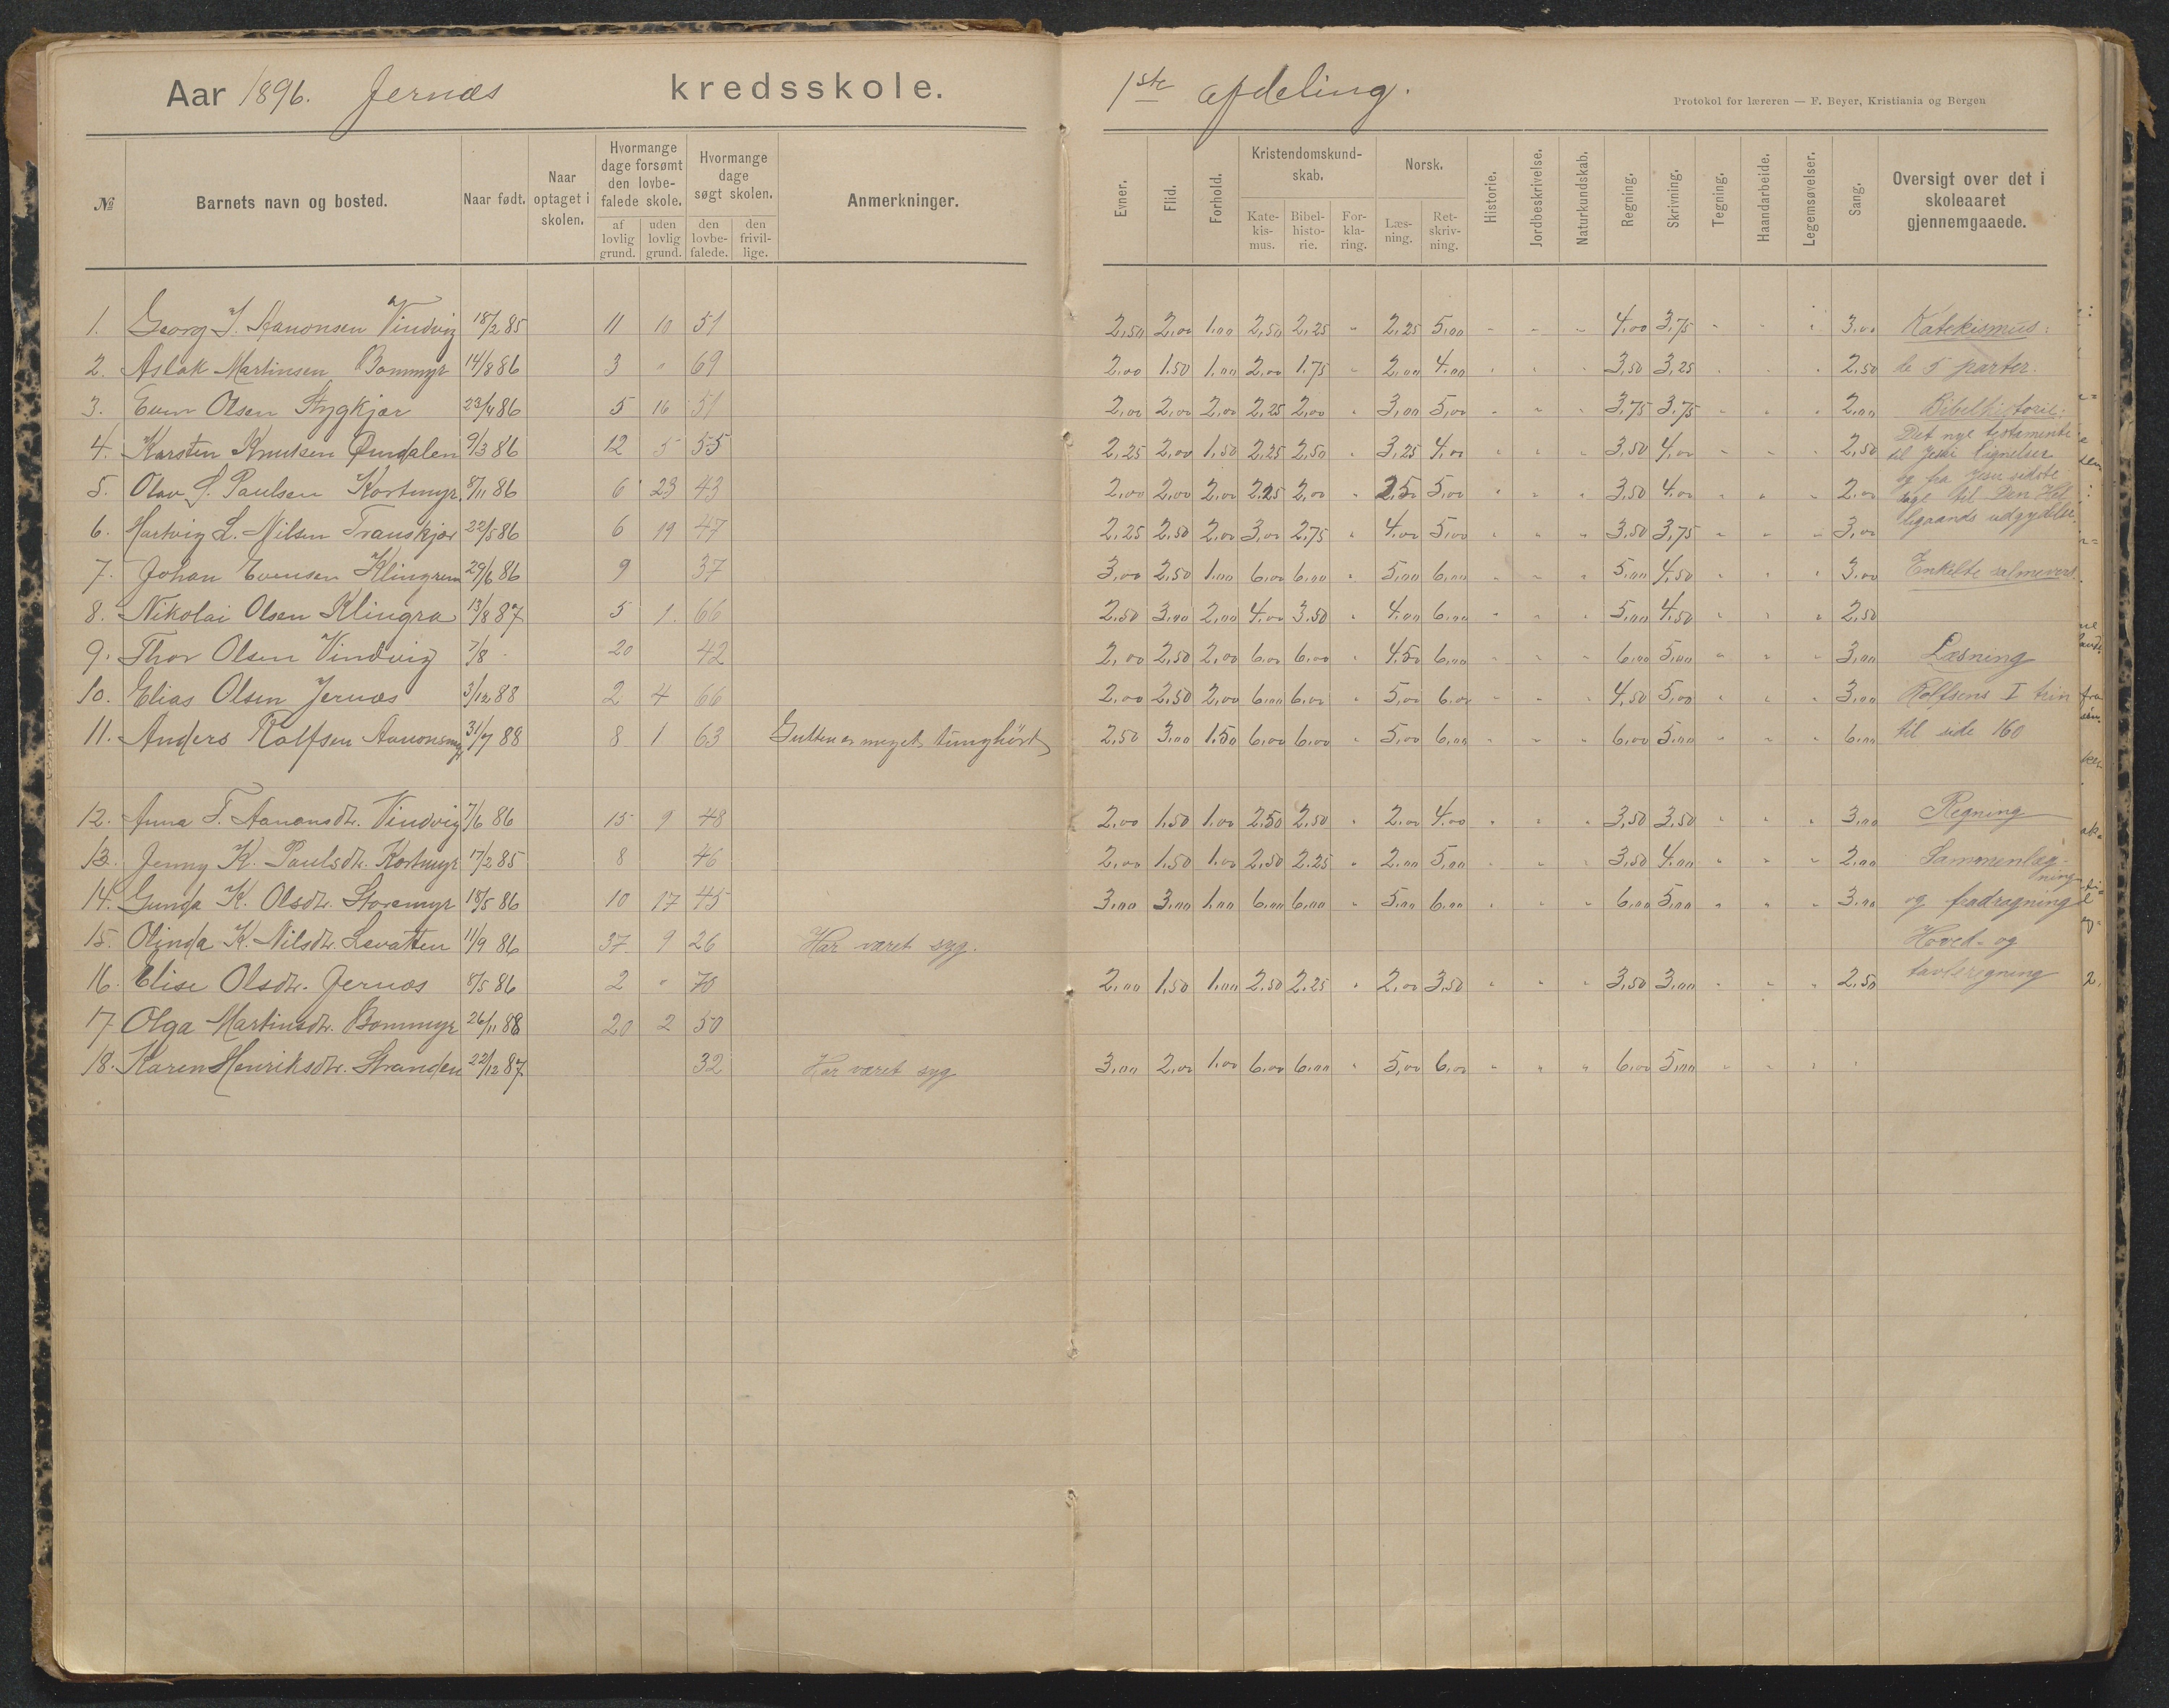 Aar 1896. Jernæs kredsskole. 1ste afdeling.
Protokol for læreren — F. Beyer, Kristiania og Bergen
№ Barnets navn og bosted. Naar født. Naar optaget i skolen. Hvormange dage forsømt den lovbefalede skole. af lovlig grund. uden lovlig grund. Hvormange dage søgt skolen. den lovbefalede. den frivillige. Anmerkninger. Evner. Flid. Forhold. Kristendomskundskab. Katekismus. Bibelhistorie. Forklaring. Norsk. Læsning. Retskrivning. Historie. Jordbeskrivelse. Naturkundskab. Regning. Skrivning. Tegning. Haandarbeide. Legemsøvelser. Sang. Oversigt over det i skoleaaret gjennemgaaede.
1. Georg J. Aanonsen Vindvig 18/2 85 11 10 51 2,50 2,00 1,00 2,50 2,25 " 2,25 5,00 " " " 4,00 3,75 " " " 3,00 Katekismus:
2. Aslak Martinsen Bommyr 14/8 86 3 " 69 2,00 1,50 1,00 2,00 1,75 " 2,00 4,00 " " " 3,50 3,25 " " " 2,50 de 5 parter.
3. Even Olsen Stygkjær 23/4 86 5 16 51 2,00 2,00 2,00 2,25 2,00 " 3,00 5,00 " " " 3,75 3,75 " " " 2,00 Bibelhistorie:
4. Karsten Knutsen 9/3 86 12 5 55 2,25 2,00 1,50 2,25 2,50 " 3,25 4,00 " " " 3,50 4,00 " " " 2,50 Det nye testamente
til Jesu lignelser
5. Olav S. Paulsen Kortmyr 8/11 86 6 23 43 2,00 2,00 2,00 2,25 2,00 " 2,50 5,00 " " " 3,50 4,00 " " " 2,00 og fra Jesu sidste
dage til Den Hel
6. Hartvig L. Nilsen Franskjær 22/5 86 6 19 47 2,25 2,50 2,00 3,00 2,75 " 4,00 5,00 " " " 3,50 3,75 " " " 3,00 ligaands udgydelse.
7. Johan Evensen 29/6 86 9 37 3,00 2,50 1,00 6,00 6,00 " 5,00 6,00 " " " 5,00 4,50 " " " 3,00 Enkelte salmevers.
8. Nikolai Olsen Klingra 13/8 87 5 1. 66 2,50 3,00 2,00 4,00 3,50 " 4,00 6,00 " " " 5,00 4,50 " " " 2,50
9. Thor Olsen Vindvig 7/8 - 20 42 2,00 2,50 2,00 6,00 6,00 " 4,50 6,00 " " " 6,00 5,00 " " " 3,00 Læsning
10. Elias Olsen Jernæs 3/12 88 2 4 66 2,00 2,50 2,00 6,00 6,00 " 5,00 6,00 " " " 4,50 5,00 " " " 3,00 Rolfsens I trin
11. Anders Rolfsen Aanonsmyr 31/7 88 8 1 63 Gutten er meget tunghørt 2,50 3,00 1,50 6,00 6,00 " 5,00 6,00 " " " 6,00 5,00 " " " 6,00 til side 160
12. Anna T. Aanonsdtr. Vindvig 7/6 86 15 9 48 2,00 1,50 1,00 2,50 2,50 " 2,00 4,00 " " " 3,50 3,50 " " " 3,00 Regning
13. Jenny K. Paulsdtr. Kortmyr 17/2 85 8 46 2,00 1,50 1,00 2,50 2,25 " 2,00 5,00 " " " 3,50 4,00 " " " 2,00 Sammenlæg-
ning
14. Gunda K. Olsdtr. Storemyr 18/5 86 10 17 45 3,00 3,00 1,00 6,00 6,00 " 5,00 6,00 " " " 6,00 5,00 " " " 3,00 og fradragning
15. Olinda K. Nilsdtr. Løvatten 11/9 86 37 9 26 Har været syg. Hoved- og
16. Elise Olsdtr. Jernæs 8/5 86 2 " 70 2,00 1,50 1,00 2,50 2,25 " 2,00 3,50 " " " 3,50 3,00 " " " 2,50 tavleregning
17. Olga Martinsdtr. Bommyr 26/11 88 20 2 50
18. Karen Henriksdtr. Stranden 22/12 87 32 Har været syg 3,00 2,00 1,00 6,00 6,00 " 5,00 6,00 " " " 6,00 5,00 " " " "